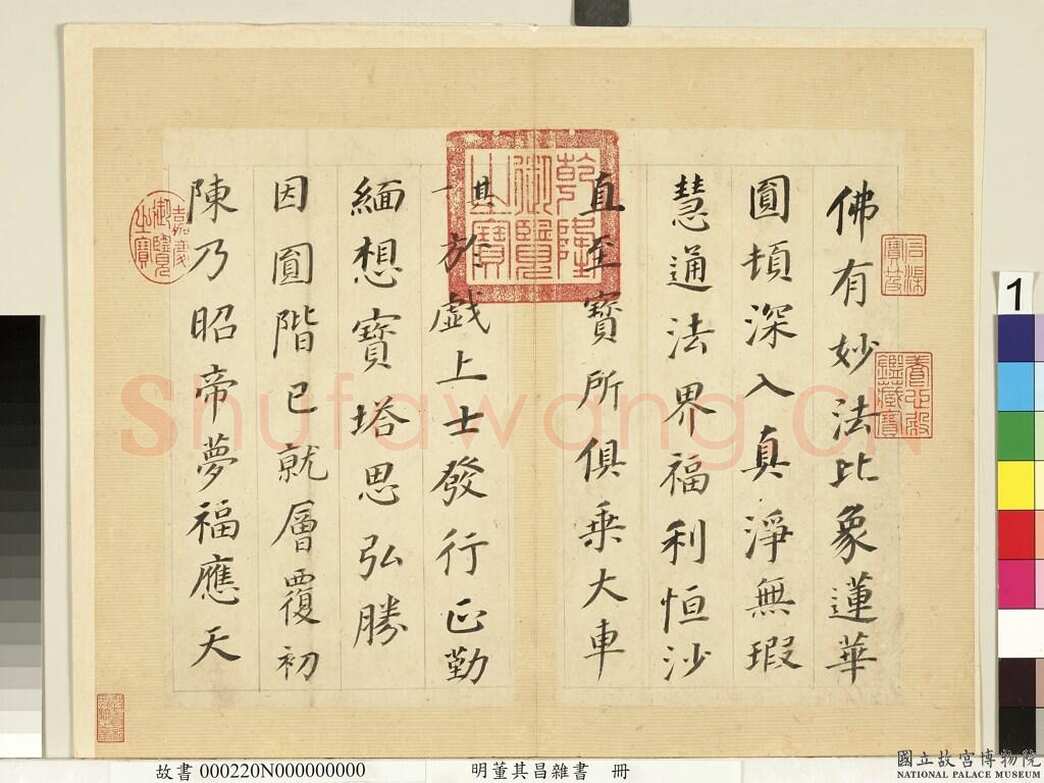 佛有妙法比象蓮華
圓頓深入真淨無瑕
慧通法界福利恒沙
直至寶所俱乗大車
其一於戯上士發行正勤
緬想寶塔思弘勝
因圓階已就層覆初
陳乃昭帝夢福應天
石渠寶笈
養心殿鑑藏寶
乾隆御覽之寶
嘉慶御覽之寶
Shufawang.CN
1
故書 000220N000000000 明董其昌雜書 冊
國立故宮博物院
NATIONAL PALACE MUSEUM